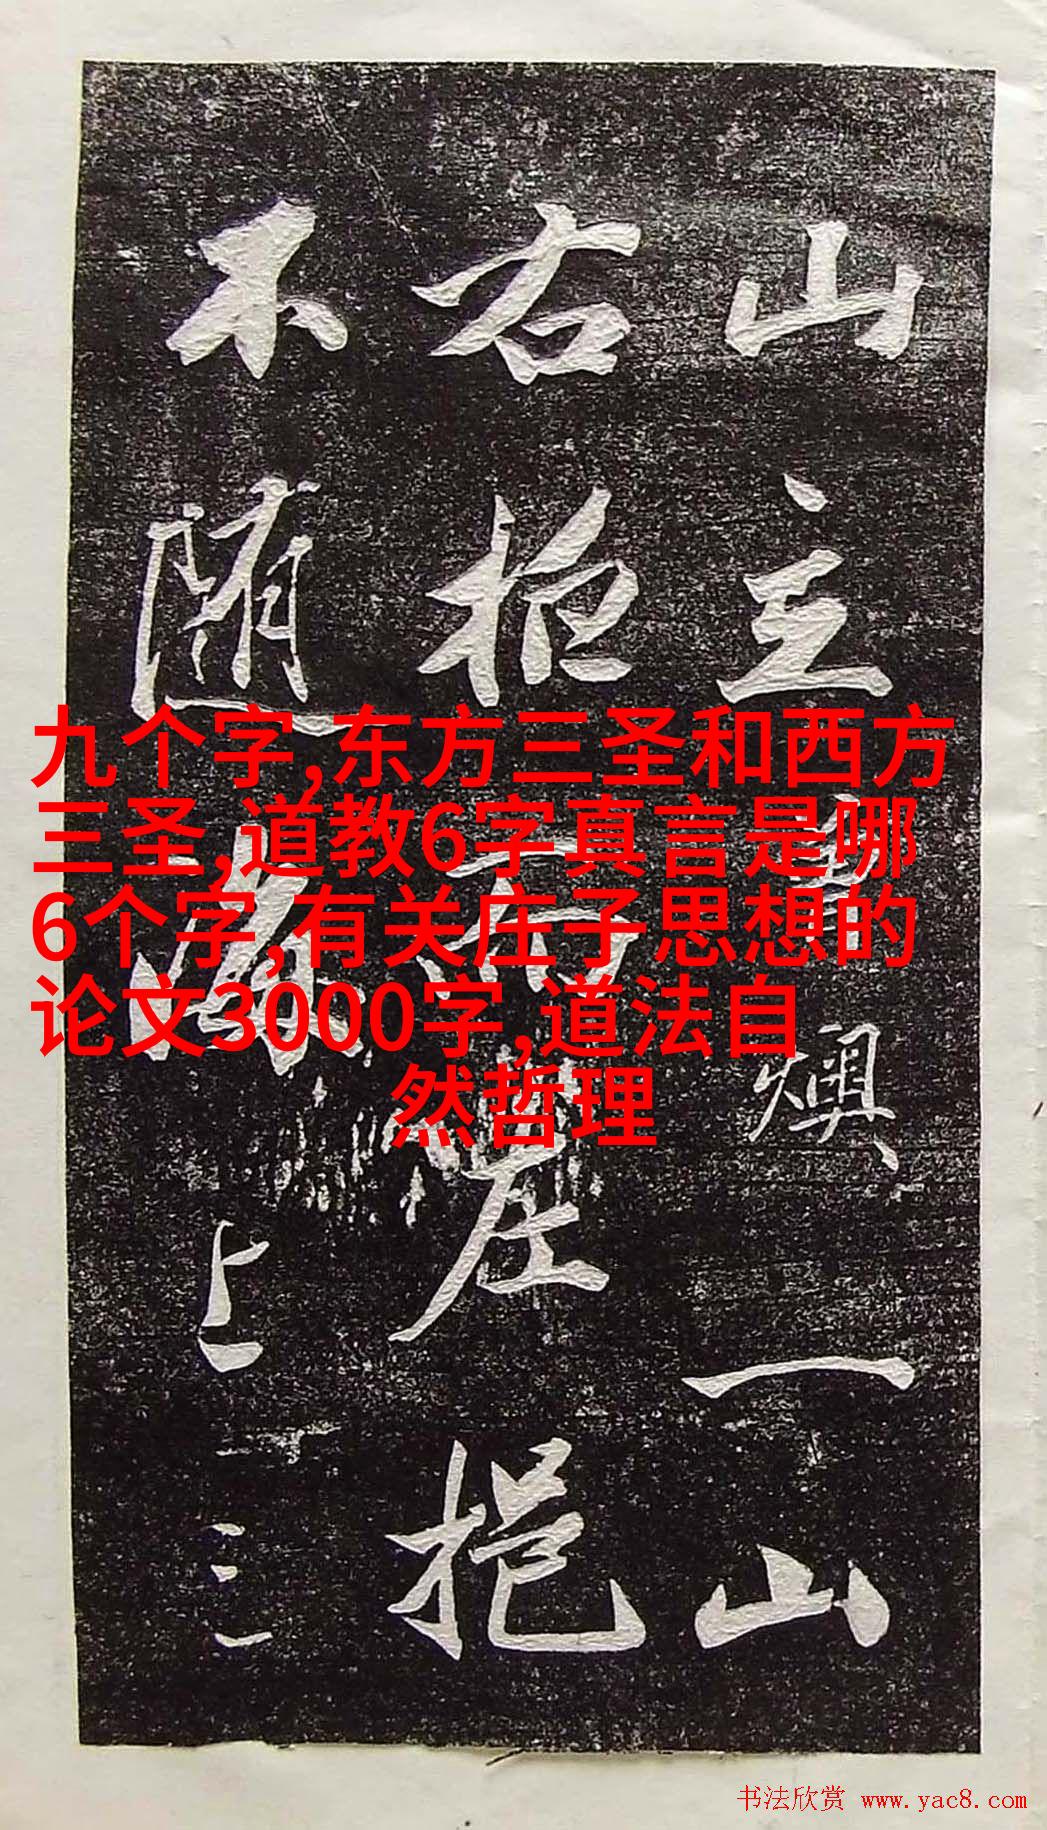 山主燠一山
右崖挹
不随上三
九个字,东方三圣和西方
三圣,道教6字真言是哪
6个字,有关庄子思想的
论文3000字,道法自
然哲理
书法欣赏 www.yac8.com